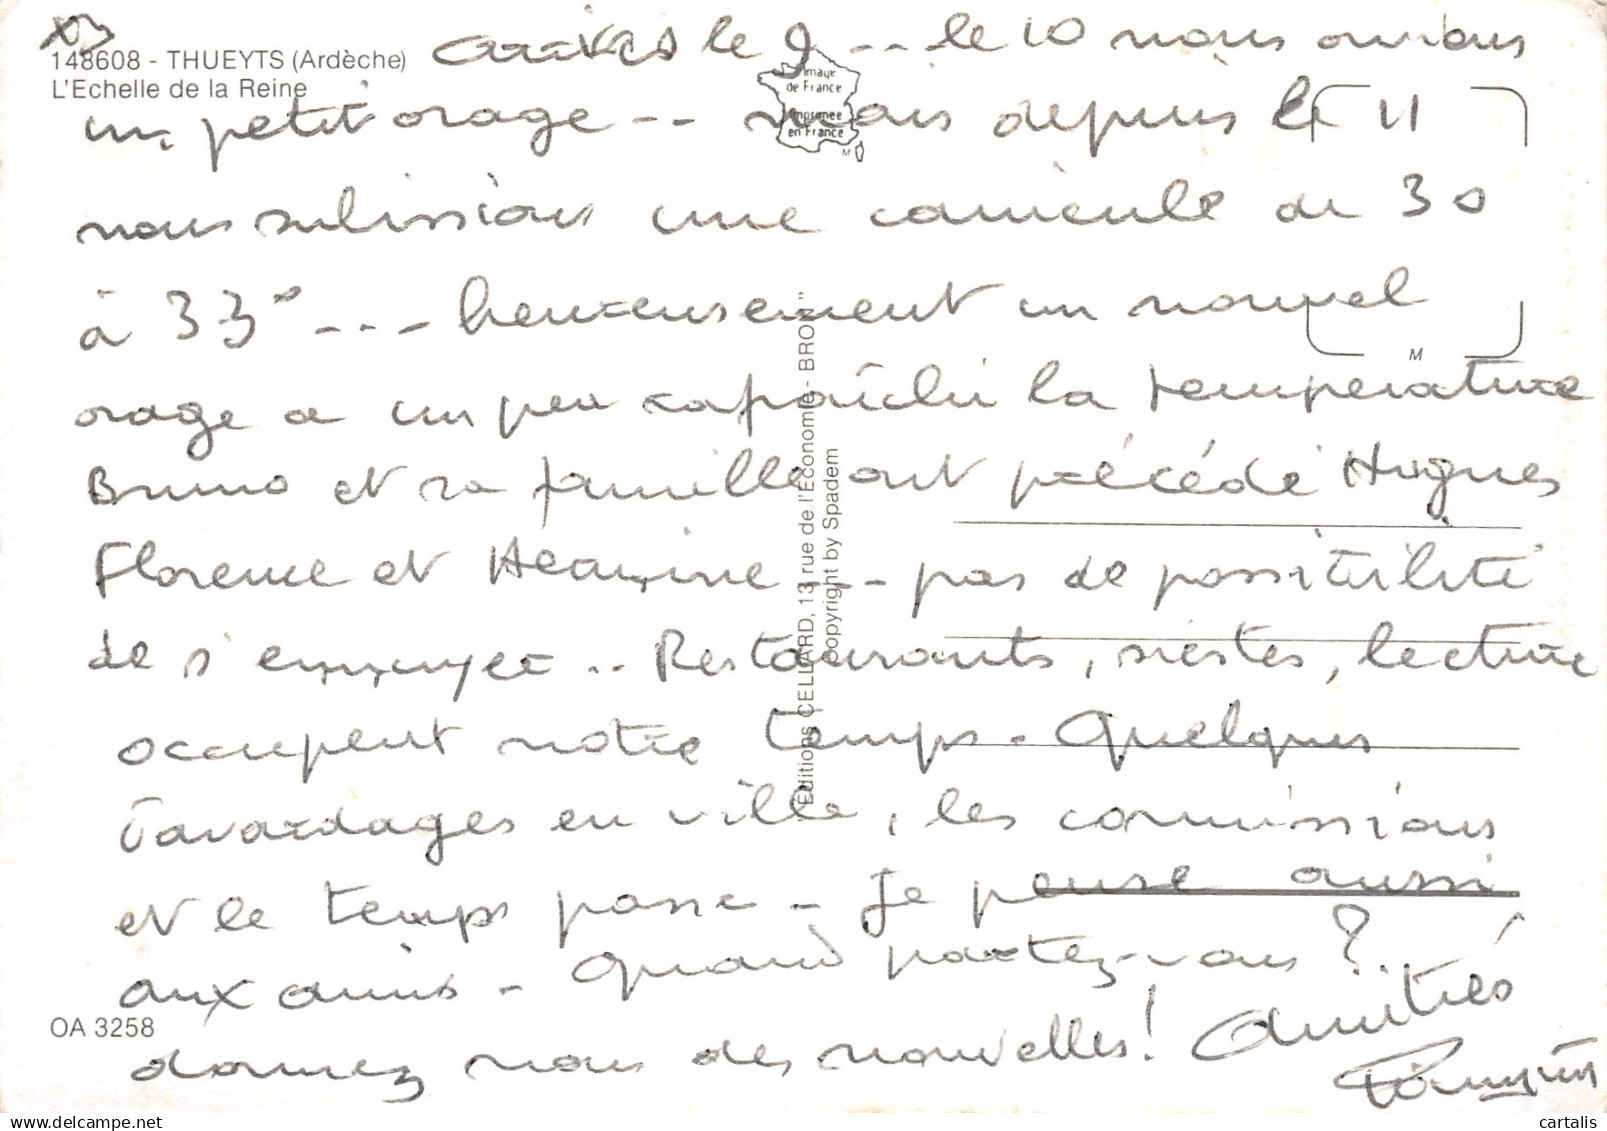 148608 - THUEYTS (Ardèche)
L'Echelle de la Reine
arrivés le 9 -- le 10 nous avions
un petit orage -- mais depuis le 11
nous subissions une canicule de 30
à 33° --- heureusement un nouvel
orage a un peu rafraîchi la température
Bruno et sa famille ont précédé Hugues
Florence et --- pas de possibilité
de s'ennuyer .. Restaurants, siestes, lecture
occupent notre temps - Quelques
bavardages en ville, les commissions
et le temps passe - Je pense aussi
aux amis - Quand partez-vous ?..
donnez nous des nouvelles ! Amitiés
Image
de France
Imprimée
en France
M
M
Editions CELLARD, 13 rue de l'Economie - BRON
Copyright by Spadem
OA 3258
cartalis